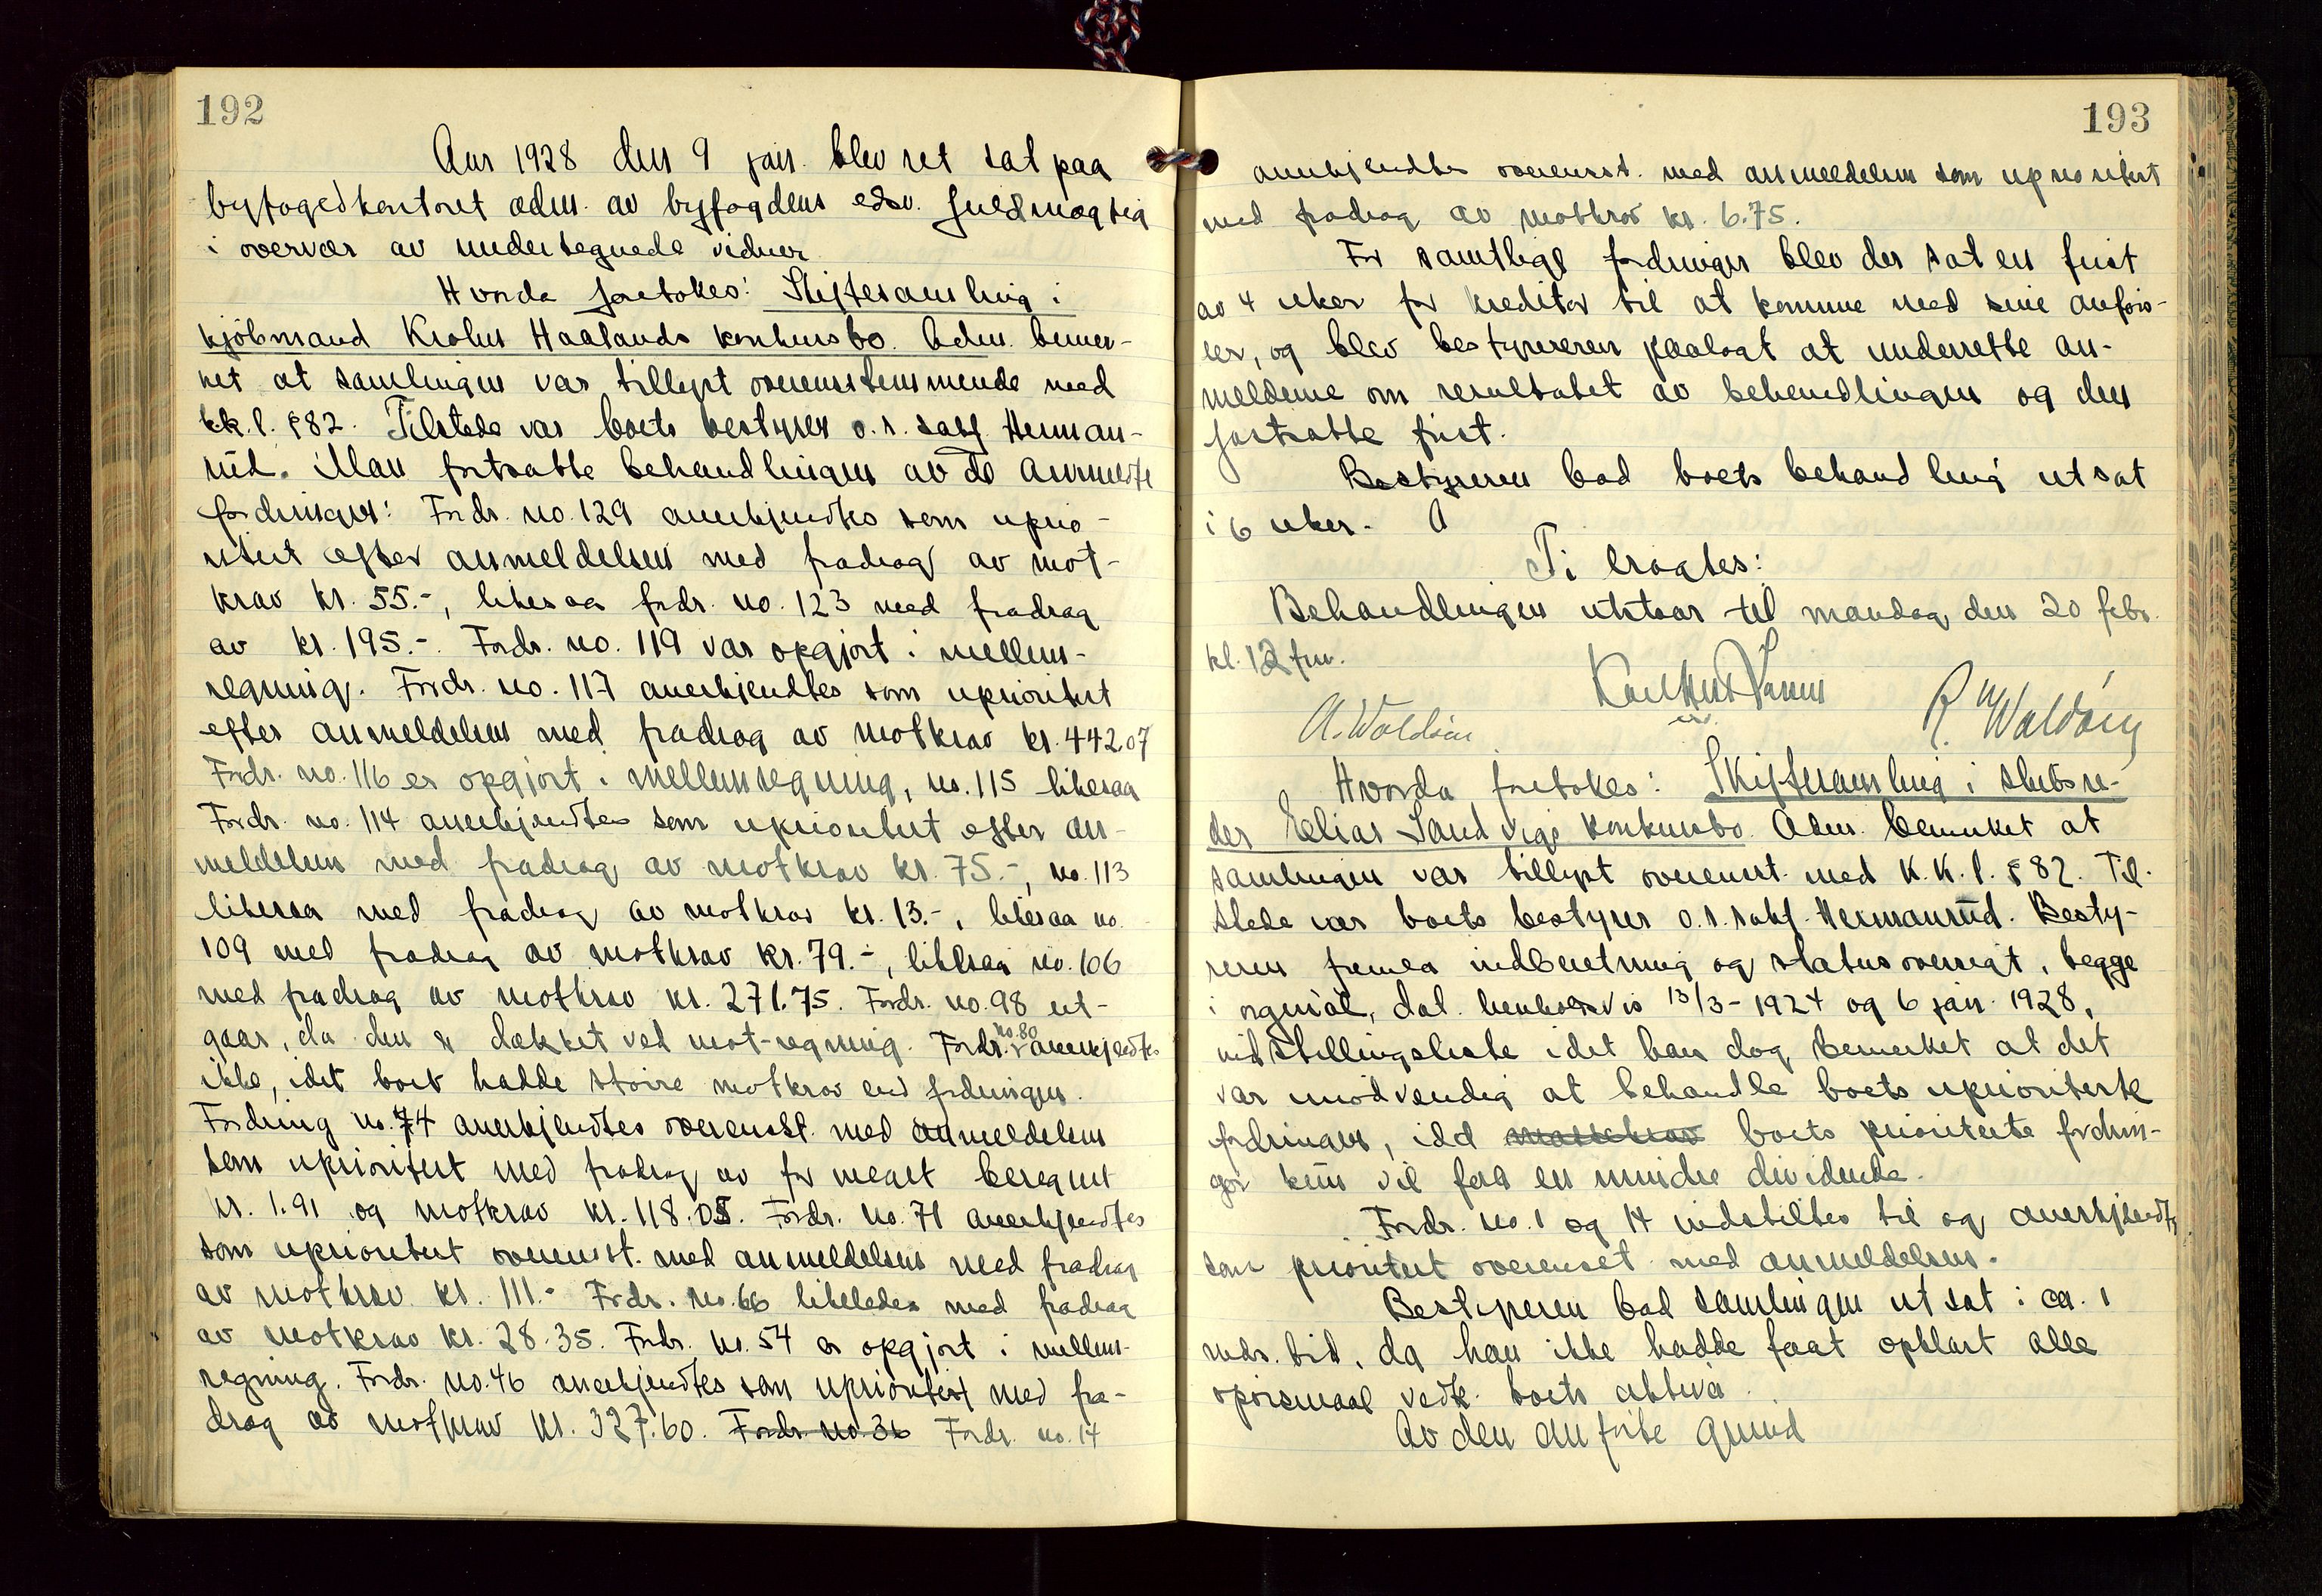 192
Aar 1928 den 9 jan. blev ret sat paa
byfogedkontoret adm. av byfogdens edsv. fuldmægtig
i overvær av undertegnede vidner
Hvorda foretokes: Skiftesamling i
kjøbmand Krolus Haalands konkursbo. Adm. bemer-
ket at samlingen var tillyst overensstemmende med
kk.l. §82. Tilstede var boets bestyrer o.r.sakf. Herman-
rud. Man fortsatte behandlingen av de anmeldte
fordringer: Fordr. no. 129 anerkjendtes som uprio-
ritert efter anmeldelsen med fradrag av mot-
krav kr. 55.-, likesaa fordr. no. 123 med fradrag
av kr. 195.-. Fordr. no. 119 var opgjort i mellem-
regning. Fordr. no. 117 anerkjendtes som uprioritert
efter anmeldelsen med fradrag av motkrav kr. 442.07
Fordr. no. 116 er opgjort i mellemregning, no. 115 likesaa
Fordr. no. 114 anerkjendtes som uprioritert efter an-
meldelsen med fradrag av motkrav kr. 75.-, no. 113
likesaa med fradrag av motkrav kr. 13.-, likesaa no.
109 med fradrag av motkrav kr. 79.-, likesaa no. 106
med fradrag av motkrav kr. 271.75. Fordr. no. 98 ut-
gaar, da den er dækket ved mot-regning. Fordr. no. 80 anerkjendtes
ikke, idet boet hadde større motkrav end fordringen.
Fordring no. 74 anerkjendtes overensst. med anmeldelsen
som uprioritert med fradrag av for meget beregnet
kr. 1.91 og motkrav kr. 118.05. Fordr. no. 71 anerkjendtes
som uprioritert overensst. med anmeldelsen med fradrag
av motkrav kr. 111.- Fordr. no. 66 likeledes med fradrag
av motkrav kr. 28.35. Fordr. no. 54 er opgjort i mellem-
regning. Fordr. no. 46 anerkjendtes som uprioritert med fra-
drag av motkrav kr. 327.60. Fordr. no. 36 Fordr. no. 14
193
anerkjendtes overensst. med anmeldelsen som uprioritert
med fradrag av motkrav kr. 6.75.
For samtlige fordringer blev der sat en frist
av 4 uker for kreditor til at komme med sine anførs-
ler, og blev bestyreren paalagt at underrette an-
melderne om resultatet av behandlingen og den
fastsatte frist.
Bestyreren bad boets behandling utsat
i 6 uker.
Ti eragtes:
Behandlingen utstaar til mandag den 20 febr.
kl. 12 fm.
A. Woldsin
R. Waldsin
Hvorda foretokes: Skiftesamling i skibsre-
der Elias Sandvigs konkursbo. Adm. bemerket at
samlingen var tillyst overenst. med K.K.l. §82. Til-
stede var boets bestyrer o.r.sakf. Hermanrud. Besty-
reren fremla indberetning og statusoversigt, begge
i orginal, dat. henholdsvis 13/3-1924 og 6 jan. 1928,
indstillingsliste idet han dog bemerket at det
var unødvendig at behandle boets uprioriterte
fordringer, idet massekrav boets prioriterte fordrin-
ger kun vil faa en mindre dividende.
Fordr. no. 1 og 14 indstilles til og anerkjendtes
som prioritert overenset med anmeldelsen.
Bestyreren bad samlingen utsat i ca. 1
mdr. tid, da han ikke hadde faat opklart alle
spørsmaal vedk. boets aktiva.
Av den anførte grund